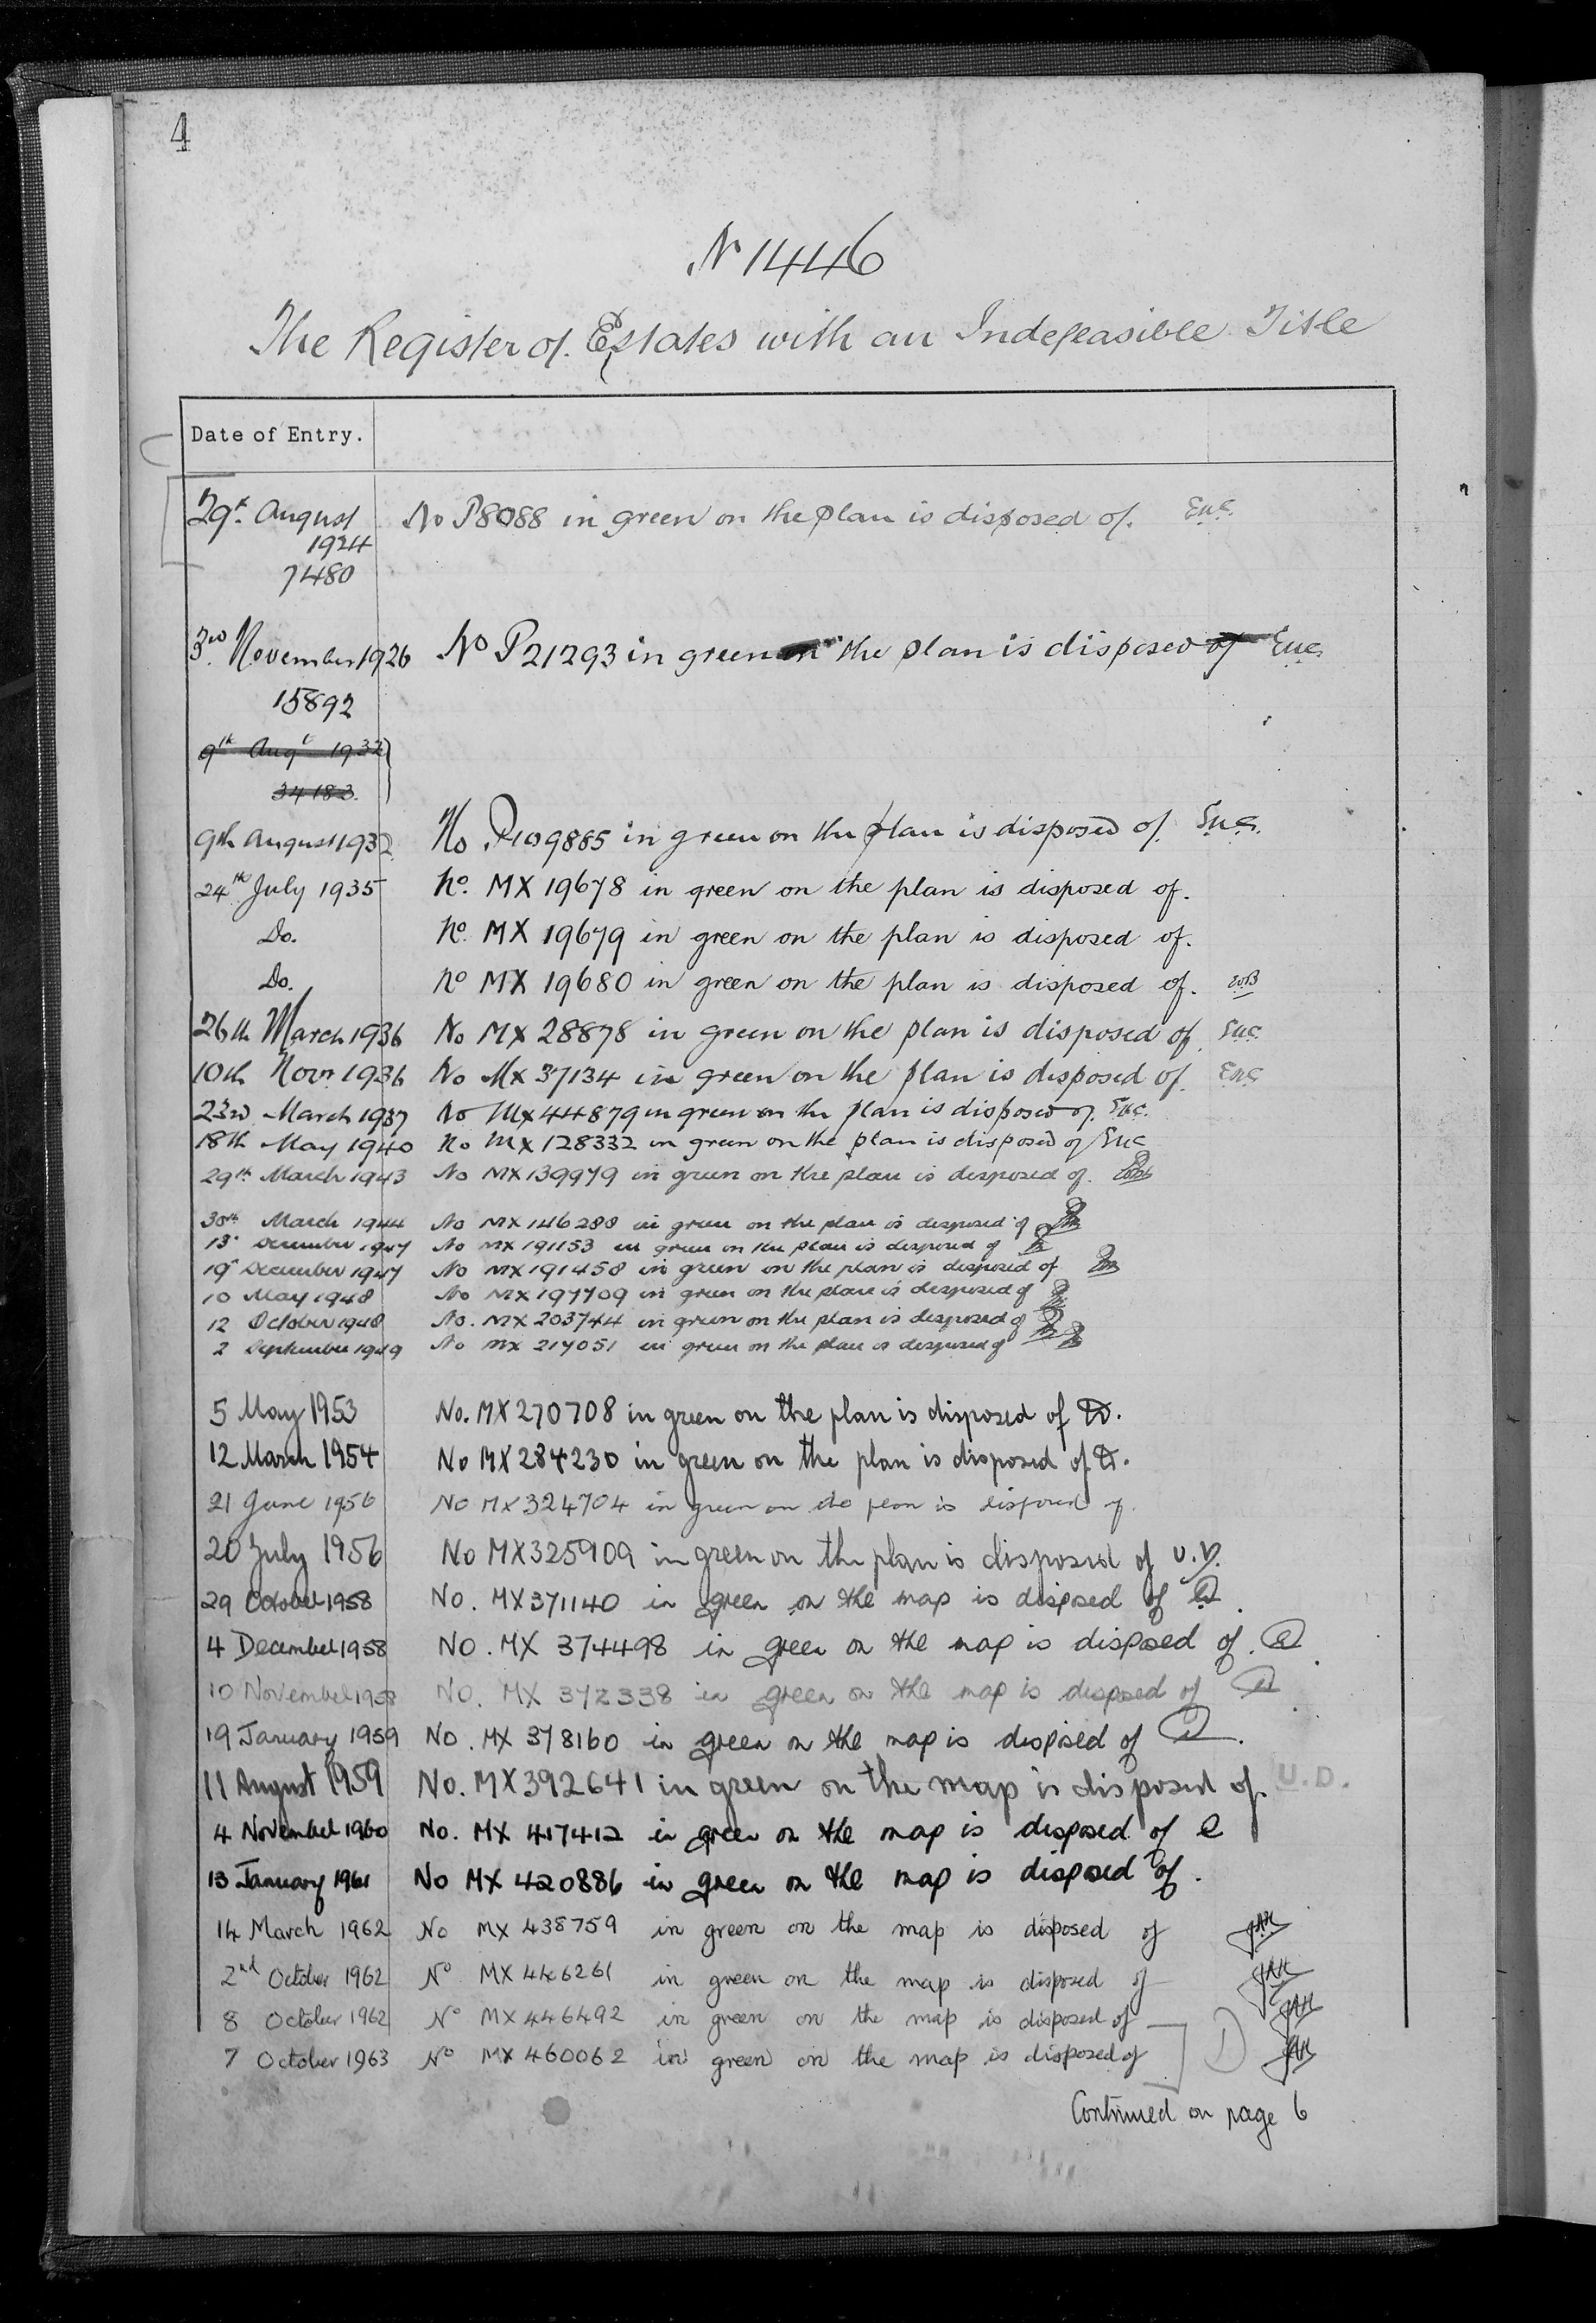 4
No 1446
The Register of Estates with an Indefeasible Title
Date of Entry.
29th August 1924 7480 No P8088 in green on the plan is disposed of.
3rd November 1926 No P21293 in green on the plan is disposed of
15892
9th Augt 1932
34183.
9th August 1932 No P109885 in green on the plan is disposed of.
24th July 1935 No. MX 19678 in green on the plan is disposed of.
Do. No. MX 19679 in green on the plan is disposed of.
Do. No MX 19680 in green on the plan is disposed of.
26th March 1936 No MX 28878 in green on the plan is disposed of.
10th Novr 1936 No MX 37134 in green on the plan is disposed of.
23rd March 1937 No MX 44879 in green on the plan is disposed of.
18th May 1940 No MX 128332 in green on the plan is disposed of
29th March 1943 No MX 139979 in green on the plan is disposed of.
30th March 1944 No MX 146288 in green on the plan is disposed of
December 1947 No MX 191153 in green on the plan is disposed of
19 December 1947 No MX 191458 in green on the plan is disposed of
10 May 1948 No MX 197709 in green on the plan is disposed of
12 October 1948 No. MX 203744 in green on the plan is disposed of
2 September 1949 No MX 217051 in green on the plan is disposed of
5 May 1953 No. MX 270708 in green on the plan is disposed of
12 March 1954 No MX 284230 in green on the plan is disposed of
21 June 1956 No MX 324704 in green on the plan is disposed of.
20 July 1956 No MX 325909 in green on the plan is disposed of U.D.
29 October 1958 No. MX 371140 in green on the map is disposed of
4 December 1958 No. MX 374498 in green on the map is disposed of.
10 November 1958 No. MX 372338 in green on the map is disposed of
19 January 1959 No. MX 378160 in green on the map is disposed of
11 August 1959 No. MX 392641 in green on the map is disposed of U.D.
4 November 1960 No. MX 417412 in green on the map is disposed of
13 January 1961 No MX 420886 in green on the map is disposed of.
14 March 1962 No MX 438759 in green on the map is disposed of
2nd October 1962 No MX 446261 in green on the map is disposed of
8 October 1962 No MX 446492 in green on the map is disposed of
7 October 1963 No MX 460062 in green on the map is disposed of
Continued on page 6